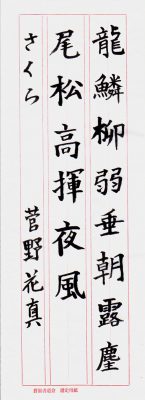 龍鱗柳弱垂朝露塵
尾松高揮夜風
さくら　菅野花真